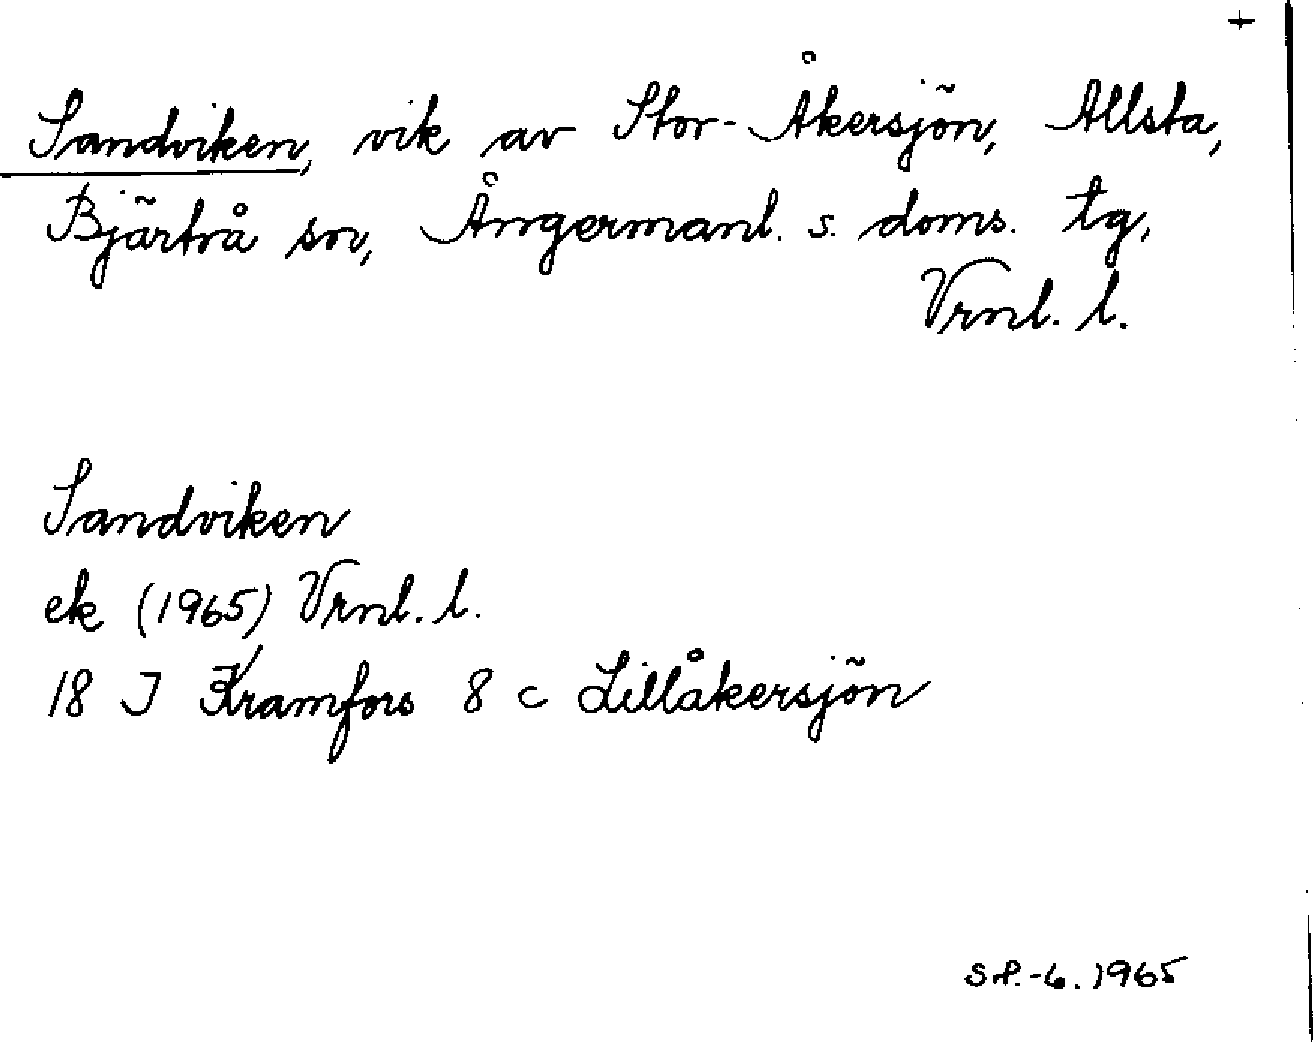 +
Sandviken, vik av Stor-Åkersjön, Allsta,
Bjärtrå sn, Ångermanl. s. doms. tg,
Vrnl. l.
Sandviken
ek (1965) Vrnl. l.
18 J Kramfors 8 c Lillåkersjön
S.P.-6.1965